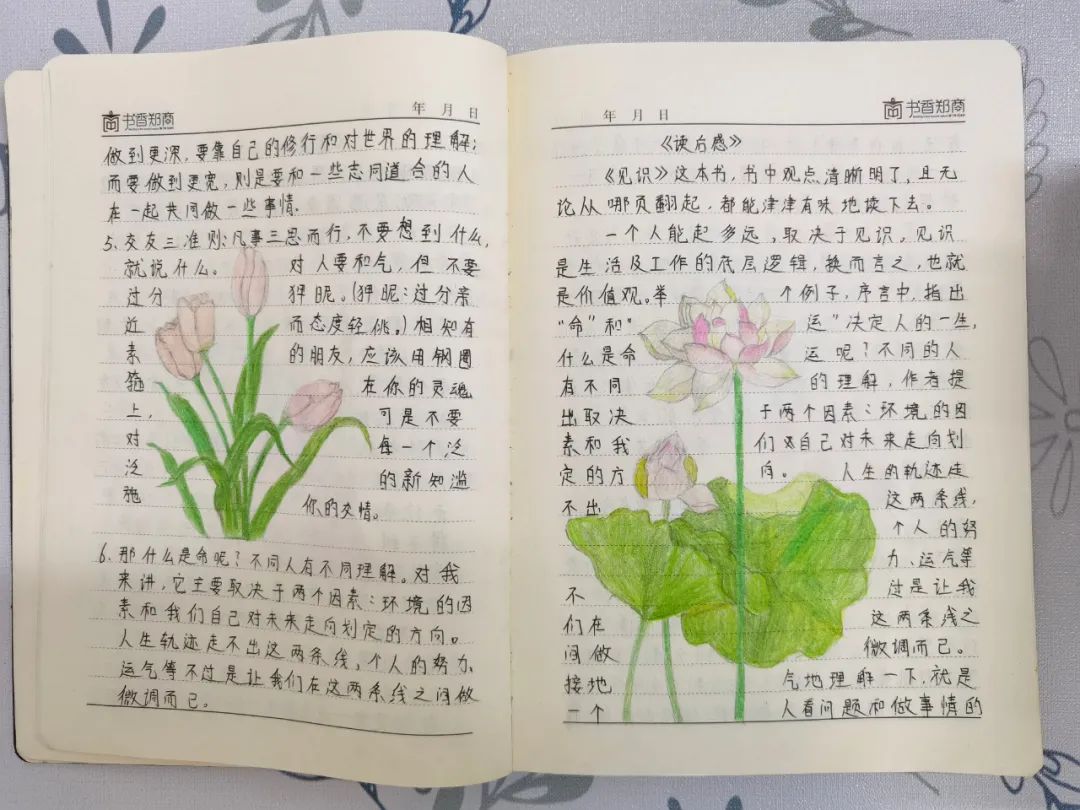 书香郑商
年 月 日
做到更深,要靠自己的修行和对世界的理解;
而要做到更宽,则是要和一些志同道合的人
在一起共同做一些事情.
5、交友三准则:凡事三思而行,不要想到什么,
就说什么。 对人要和气,但不要
过分 狎昵。(狎昵:过分亲
近 而态度轻佻。)相知有
素 的朋友,应该用钢圈
箍 在你的灵魂
上, 可是不要
对 每一个泛
泛 的新知滥
施 你的交情。
6、那什么是命呢?不同人有不同理解。对我
来讲,它主要取决于两个因素:环境的因
素和我们自己对未来走向划定的方向。
人生轨迹走不出这两条线,个人的努力、
运气等不过是让我们在这两条线之间做
微调而已。
年 月 日
书香郑商
《读后感》
《见识》这本书,书中观点清晰明了,且无
论从哪页翻起,都能津津有味地读下去。
一个人能起多远,取决于见识。见识
是生活及工作的底层逻辑,换而言之,也就
是价值观。举 个例子,序言中,指出
“命”和“ 运”决定人的一生,
什么是命 运呢?不同的人
有不同 的理解,作者提
出取决 于两个因素:环境的因
素和我 们对自己对未来走向划
定的方 向。 人生的轨迹走
不出 这两条线,
个人的努
力、运气等
不 过是让我
们在 这两条线之
间做 微调而已。
接地 气地理解一下,就是
一个 人看问题和做事情的